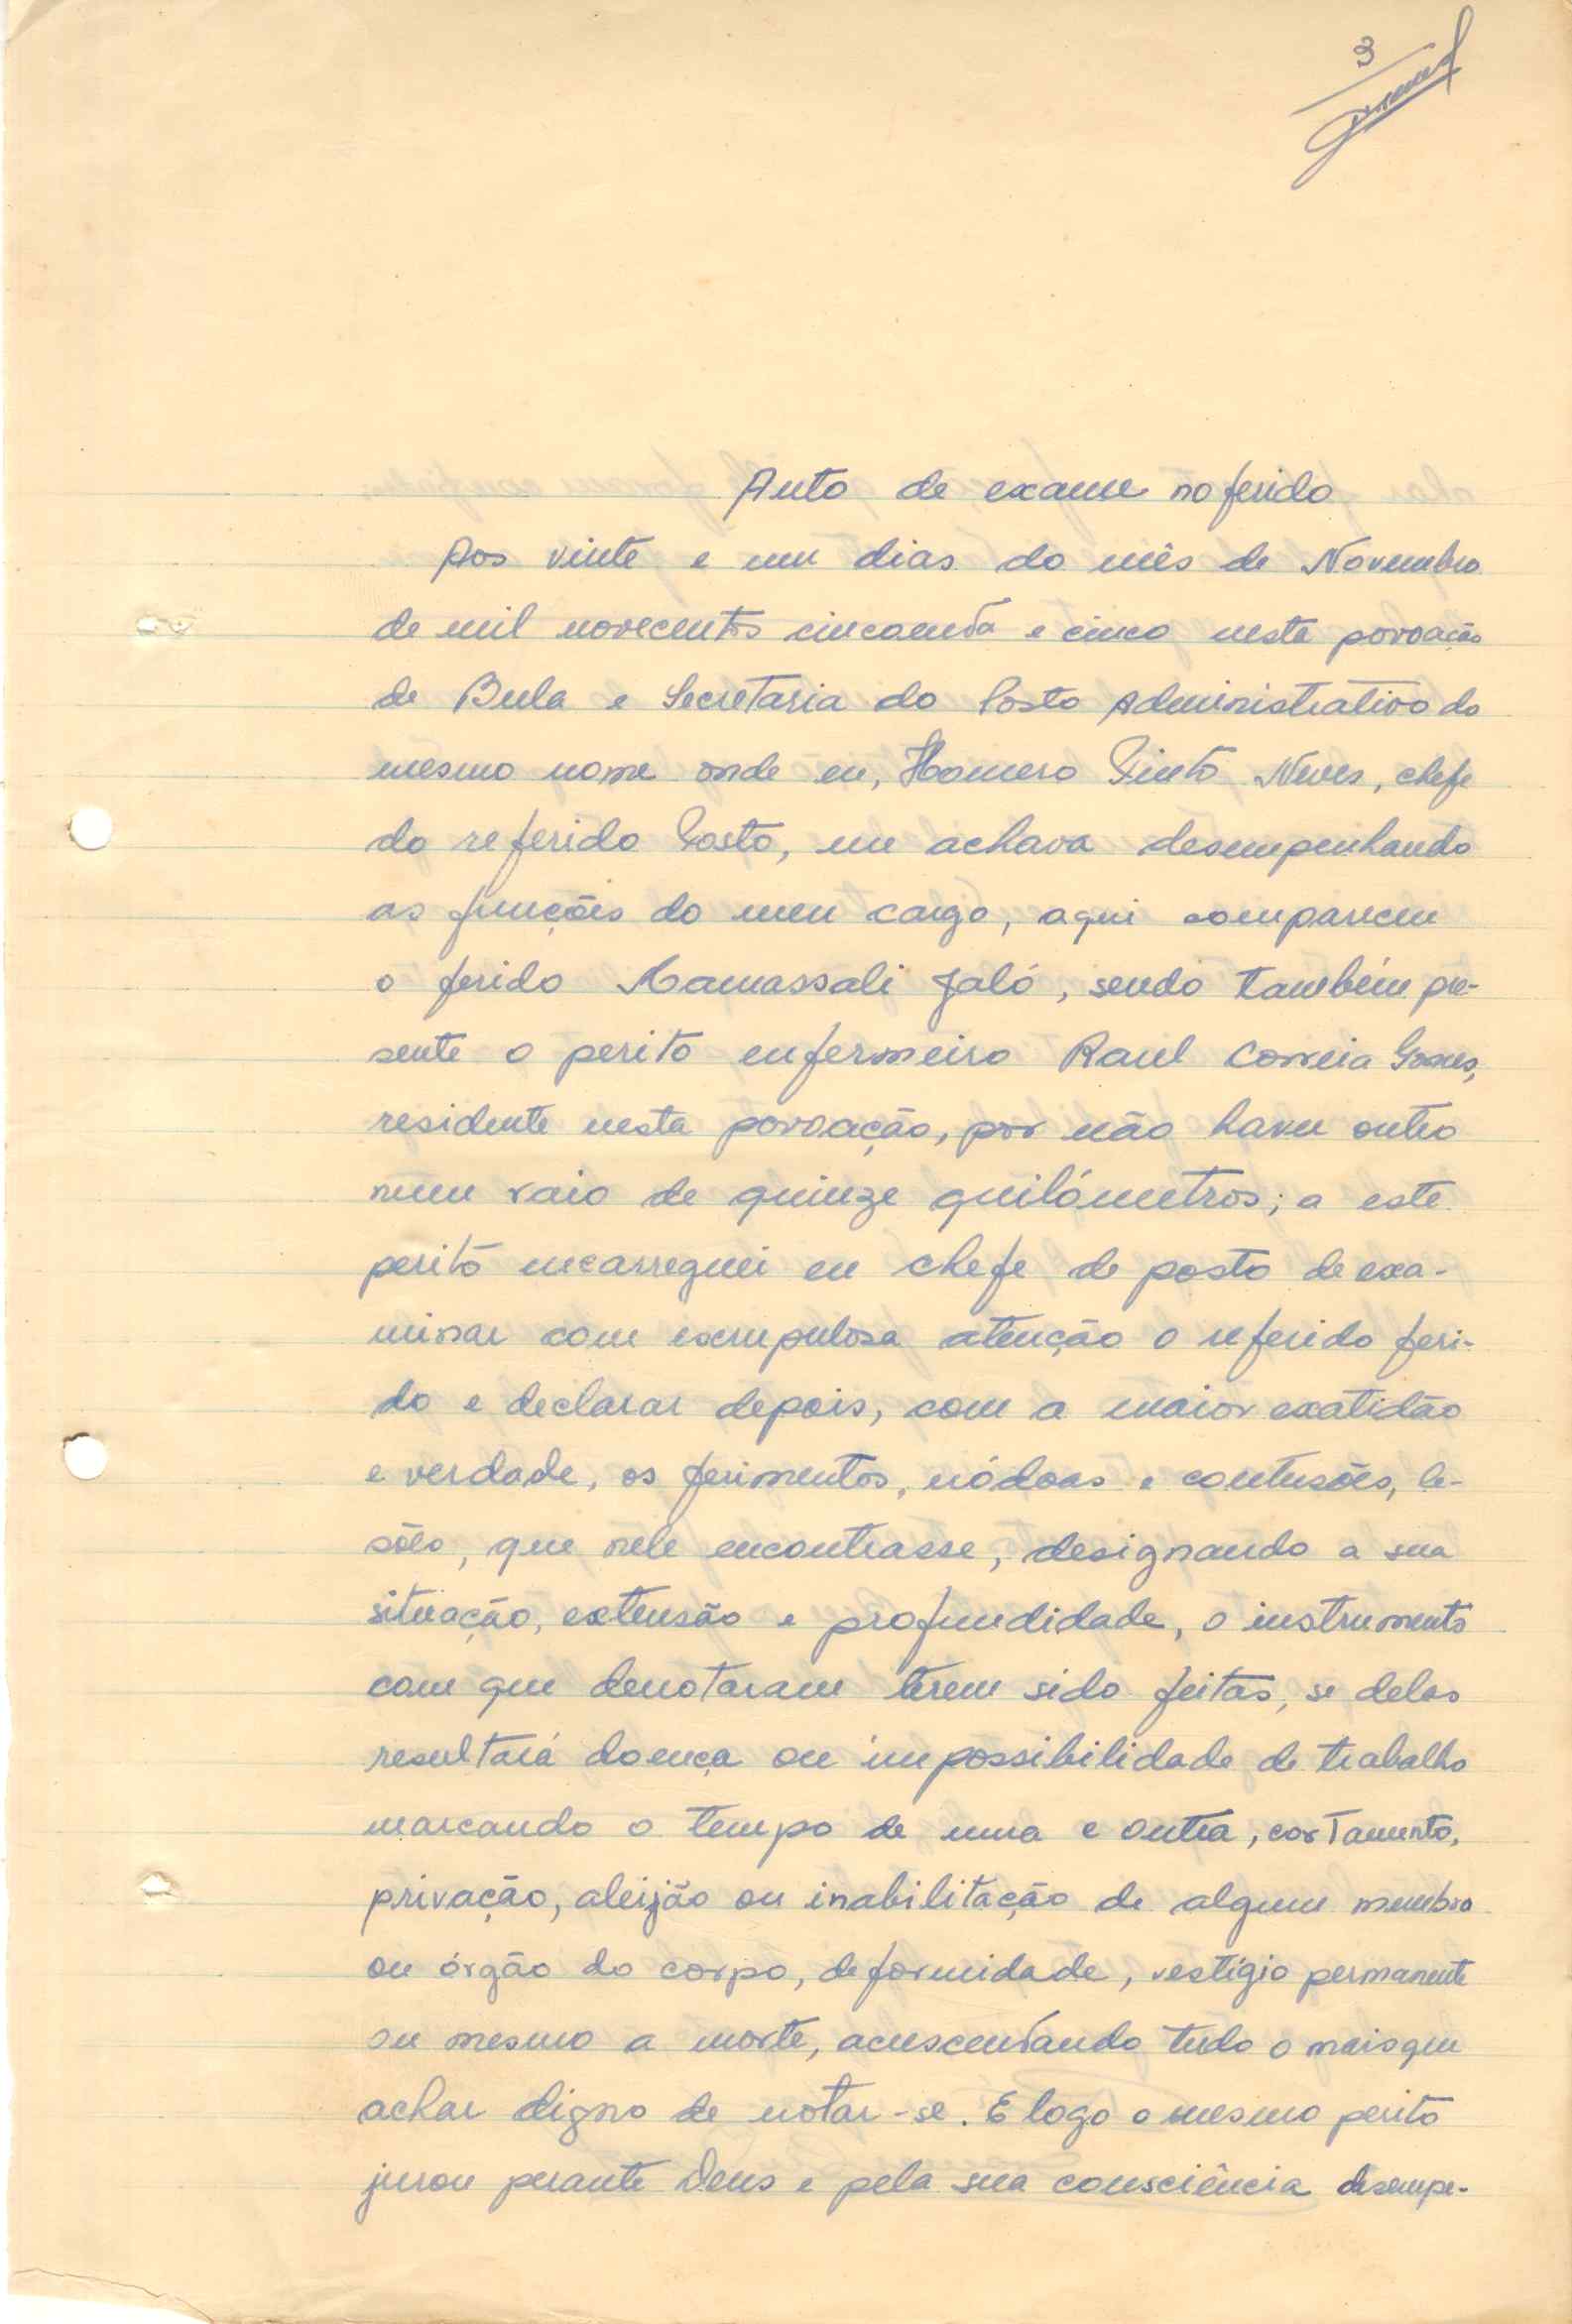 3
Auto de exame no ferido
Aos vinte e um dias do mês de Novembro
de mil novecentos cincoenta e cinco nesta povoação
de Bula e Secretaria do Posto Administrativo do
mesmo nome onde eu, Homero Pinto Neves, chefe
do referido Posto, me achava desempenhando
as funções do meu cargo, aqui compareceu
o ferido Mamassali Jaló, sendo também pre-
sente o perito enfermeiro Raul Correia Gomes,
residente nesta povoação, por não haver outro
num raio de quinze quilómetros; a este
perito encarreguei eu chefe de posto de exa-
minar com escrupulosa atenção o referido feri-
do e declarar depois, com a maior exatidão
e verdade, os ferimentos, nódoas e contusões, le-
sões, que nele encontrasse, designando a sua
situação, extensão e profundidade, o instrumento
com que denotaram terem sido feitas, se delas
resultará doença ou impossibilidade de trabalho
marcando o tempo de uma e outra, cortamento,
privação, aleijão ou inabilitação de algum membro
ou órgão do corpo, deformidade, vestígio permanente
ou mesmo a morte, acrescentando tudo o mais que
achar digno de notar-se. E logo o mesmo perito
jurou perante Deus e pela sua consciência desempe-